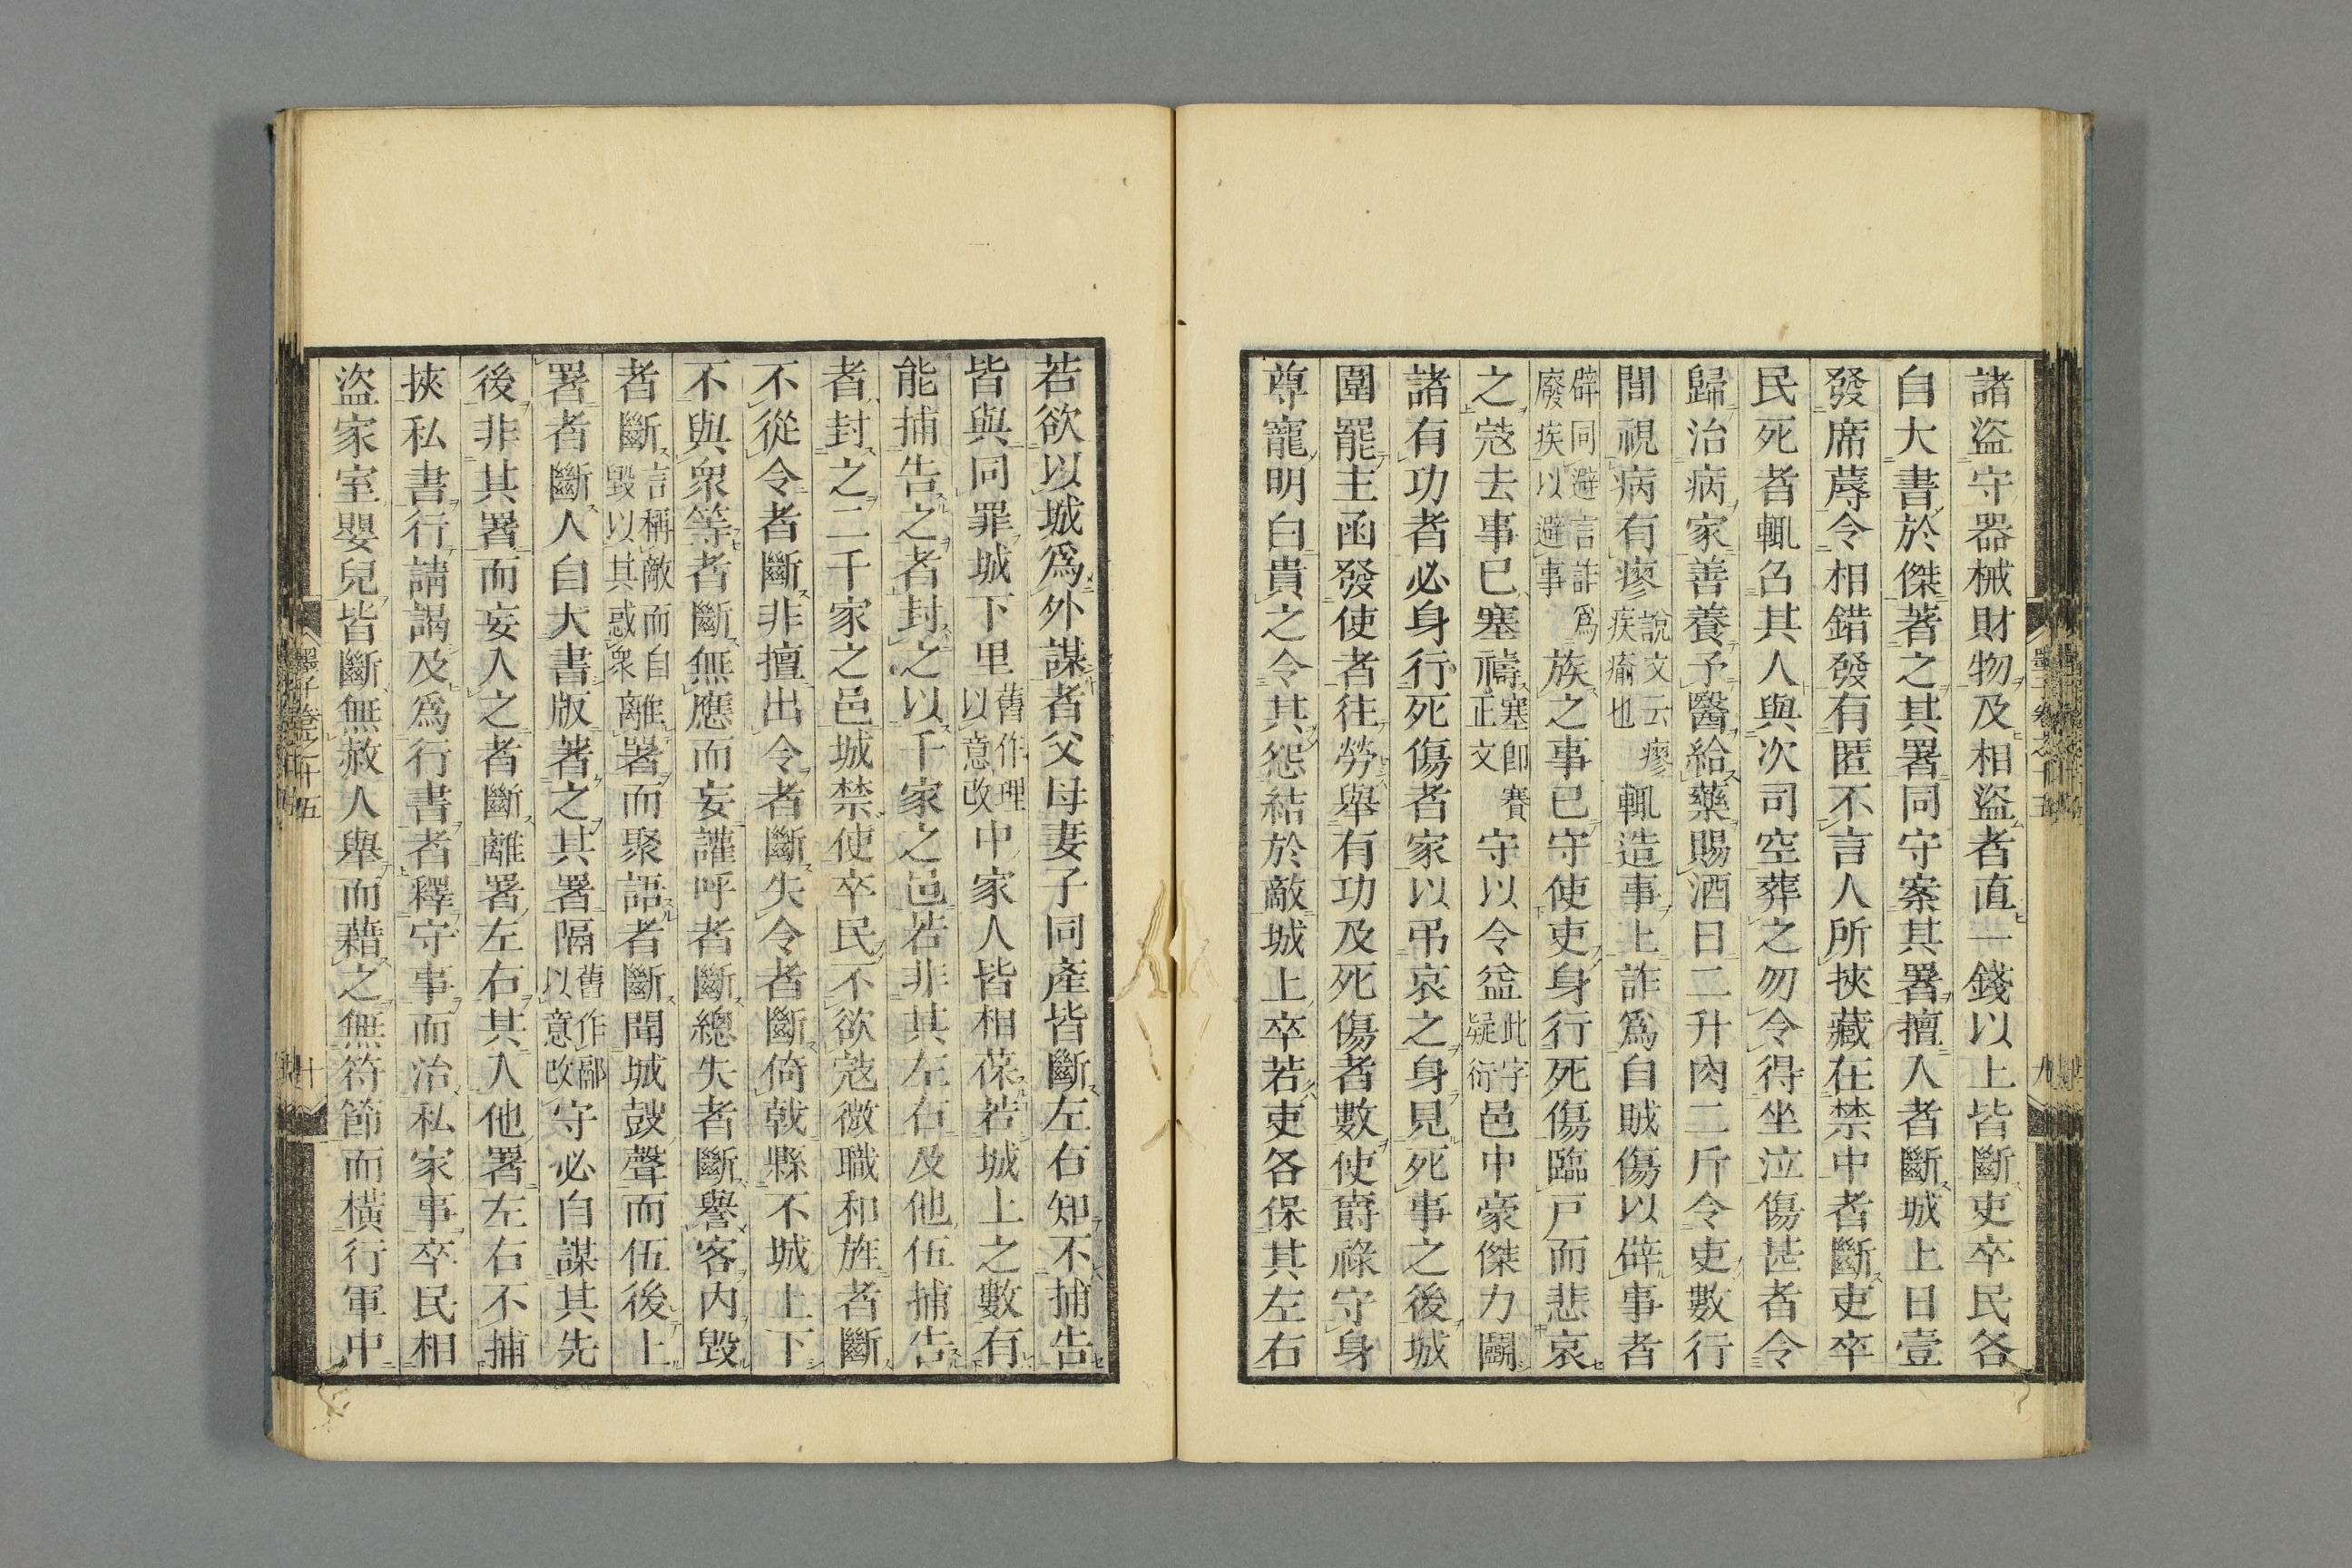 諸盜守器械財物及相盜者直一錢以上皆斷吏卒民各
自大書於傑著之其署同守案其署擅入者斷城上日壹
發席蓐令相錯發有匿不言人所挾藏在禁中者斷吏卒
民死者輒召其人與次司空葬之勿令得坐泣傷甚者令
歸治病家善養予醫給藥賜酒日二升肉二斤令吏數行
閭視病有瘳說文云瘳疾瘉也輒造事上詐爲自賊傷以辟事者
辟同避言詐爲廢疾以避事族之事已守使吏身行死傷臨戸而悲哀
之寇去事已塞禱塞卽賽正文守以令益此字疑衍邑中豪傑力鬭
諸有功者必身行死傷者家以弔哀之身見死事之後城
圍罷主函發使者往勞舉有功及死傷者數使爵祿守身
尊寵明白貴之令其怨結於敵城上卒若吏各保其左右
若欲以城爲外謀者父母妻子同產皆斷左右知不捕告
皆與同罪城下里舊作理以意改中家人皆相葆若城上之數有
能捕告之者封之以千家之邑若非其左右及他伍捕告
者封之二千家之邑城禁使卒民不欲寇微職和旌者斷
不從令者斷非擅出令者斷失令者斷倚戟縣不城上下
不與衆等者斷無應而妄讙呼者斷總失者斷譽客內毀
者斷言稱敵而自毀以其惑衆離署而聚語者斷聞城鼓聲而伍後上
署者斷人自大書版著之其署隔舊作鄏以意改守必自謀其先
後非其署而妄入之者斷離署左右共入他署左右不捕
挾私書行請謁及爲行書者釋守事而治私家事卒民相
盜家室嬰兒皆斷無赦人舉而藉之無符節而橫行軍中
墨子卷之十五
九
墨子卷之十五
十